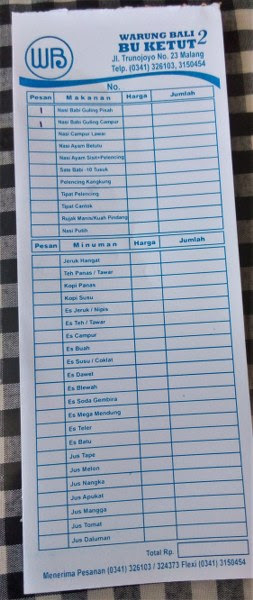 WB
WARUNG BALI
BU KETUT 2
Jl. Trunojoyo No. 23 Malang
Telp. (0341) 326103, 3150454
No.
Pesan Makanan Harga Jumlah
1 Nasi Babi Guling Pisah
1 Nasi Babi Guling Campur
Nasi Campur Lawar
Nasi Ayam Betutu
Nasi Ayam Sisit+Pelencing
Sate Babi 10 Tusuk
Pelencing Kangkung
Tipat Pelencing
Tipat Cantok
Rujak Manis/Kuah Pindang
Nasi Putih
Pesan Minuman Harga Jumlah
Jeruk Hangat
Teh Panas / Tawar
Kopi Panas
Kopi Susu
Es Jeruk / Nipis
Es Teh / Tawar
Es Campur
Es Buah
Es Susu / Coklat
Es Dawet
Es Blewah
Es Soda Gembira
Es Mega Mendung
Es Teler
Es Batu
Jus Tape
Jus Melon
Jus Nangka
Jus Apukat
Jus Mangga
Jus Tomat
Jus Daluman
Total Rp.
Menerima Pesanan (0341) 326103 / 324373 Flexi (0341) 3150454